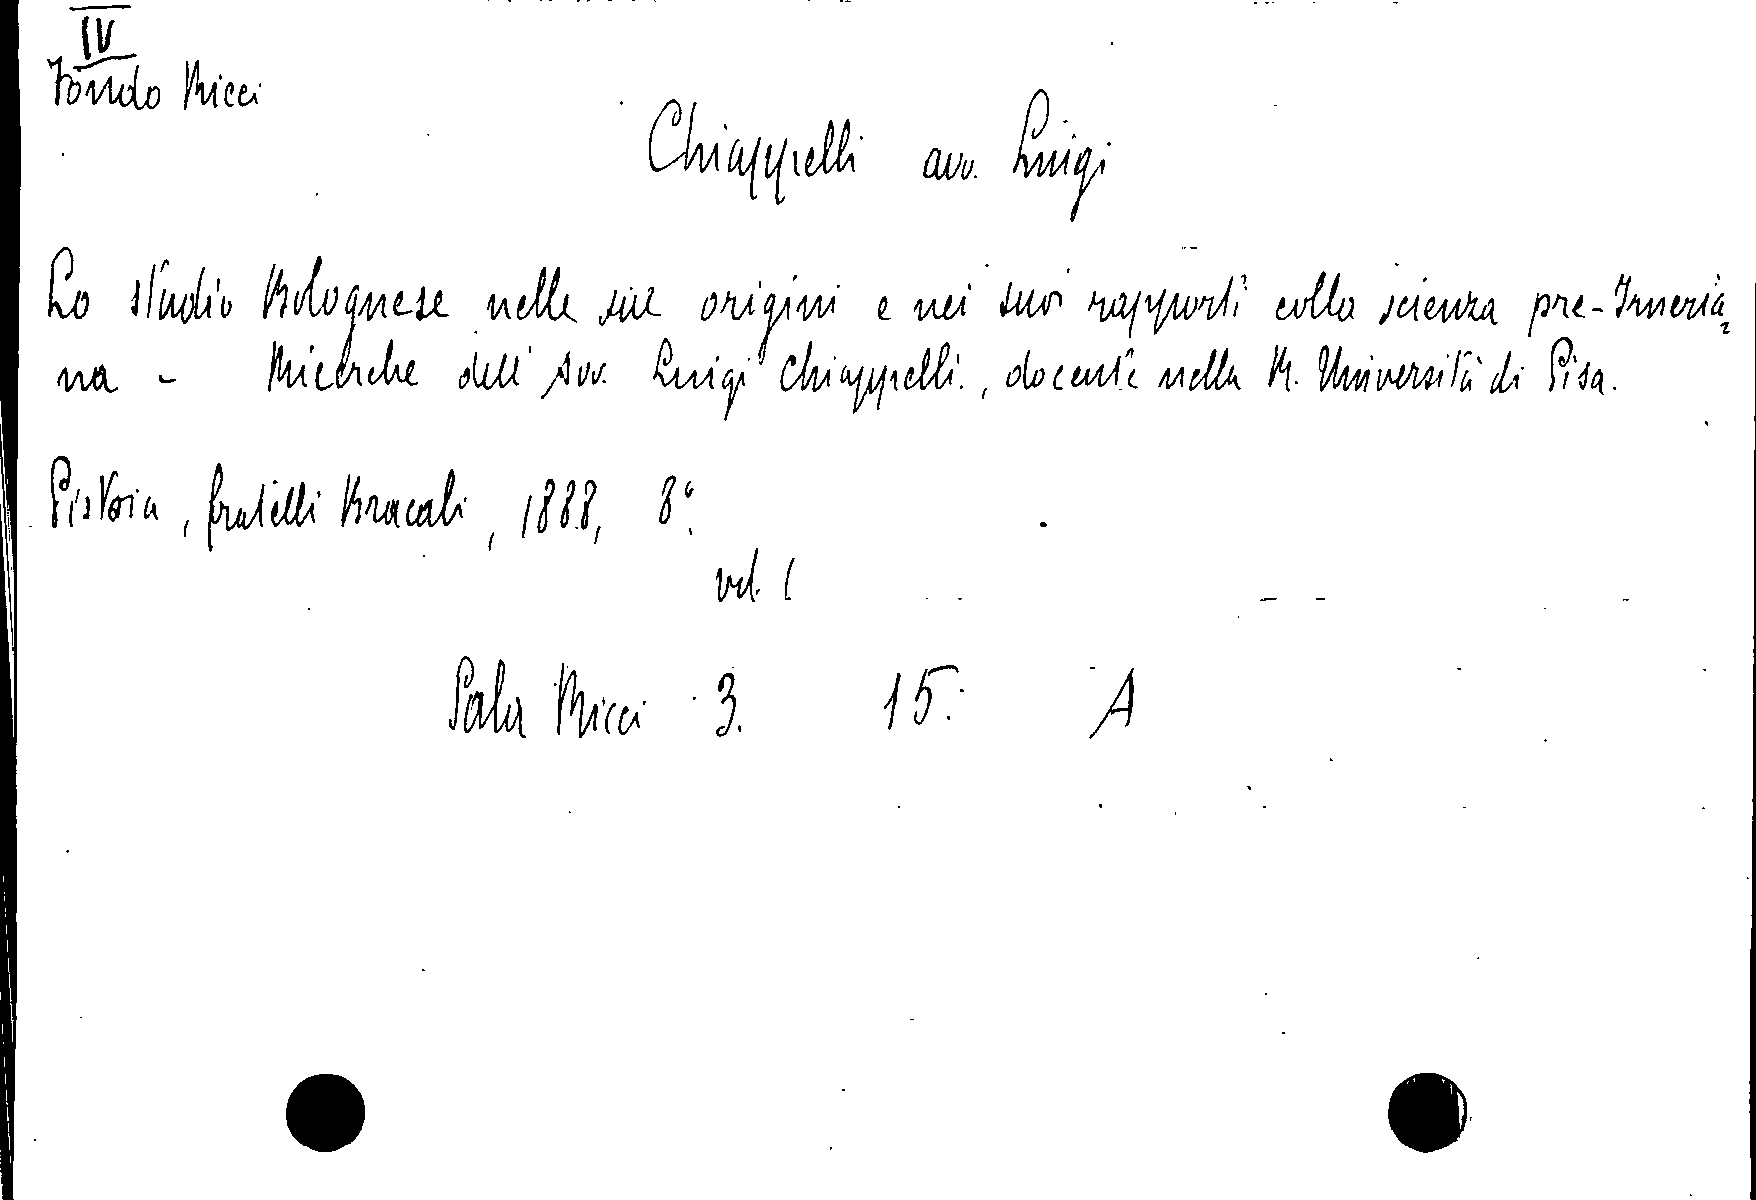 IV
Fondo Ricci
Chiappelli avv. Luigi
Lo studio Bolognese nelle sue origini e nei suoi rapporti colla scienza pre-Irneria=
na - Ricerche dell' Avv. Luigi Chiappelli., docente nella R. Università di Pisa.
Pistoia, fratelli Bracali, 1888, 8°.
vol. 1
Sala Ricci 3. 15. A